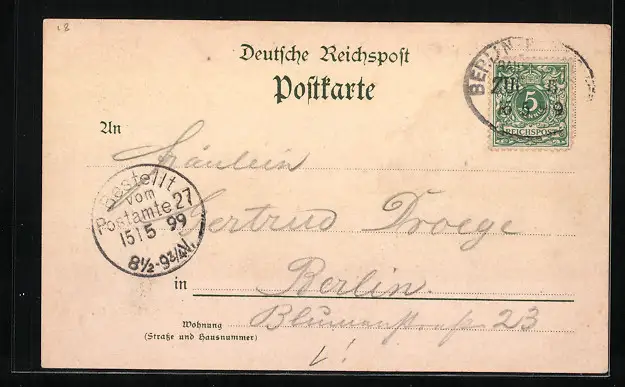 18
Deutsche Reichspost
Postkarte
BERLIN
ZUG
5
REICHSPOST
An
Fräulein
Gertrud Droege
Bestellt
vom
Postamte 27
15 15 99
8½-9¾V.
in Berlin
Wohnung Blumenstr. 23
(Straße und Hausnummer)
L!